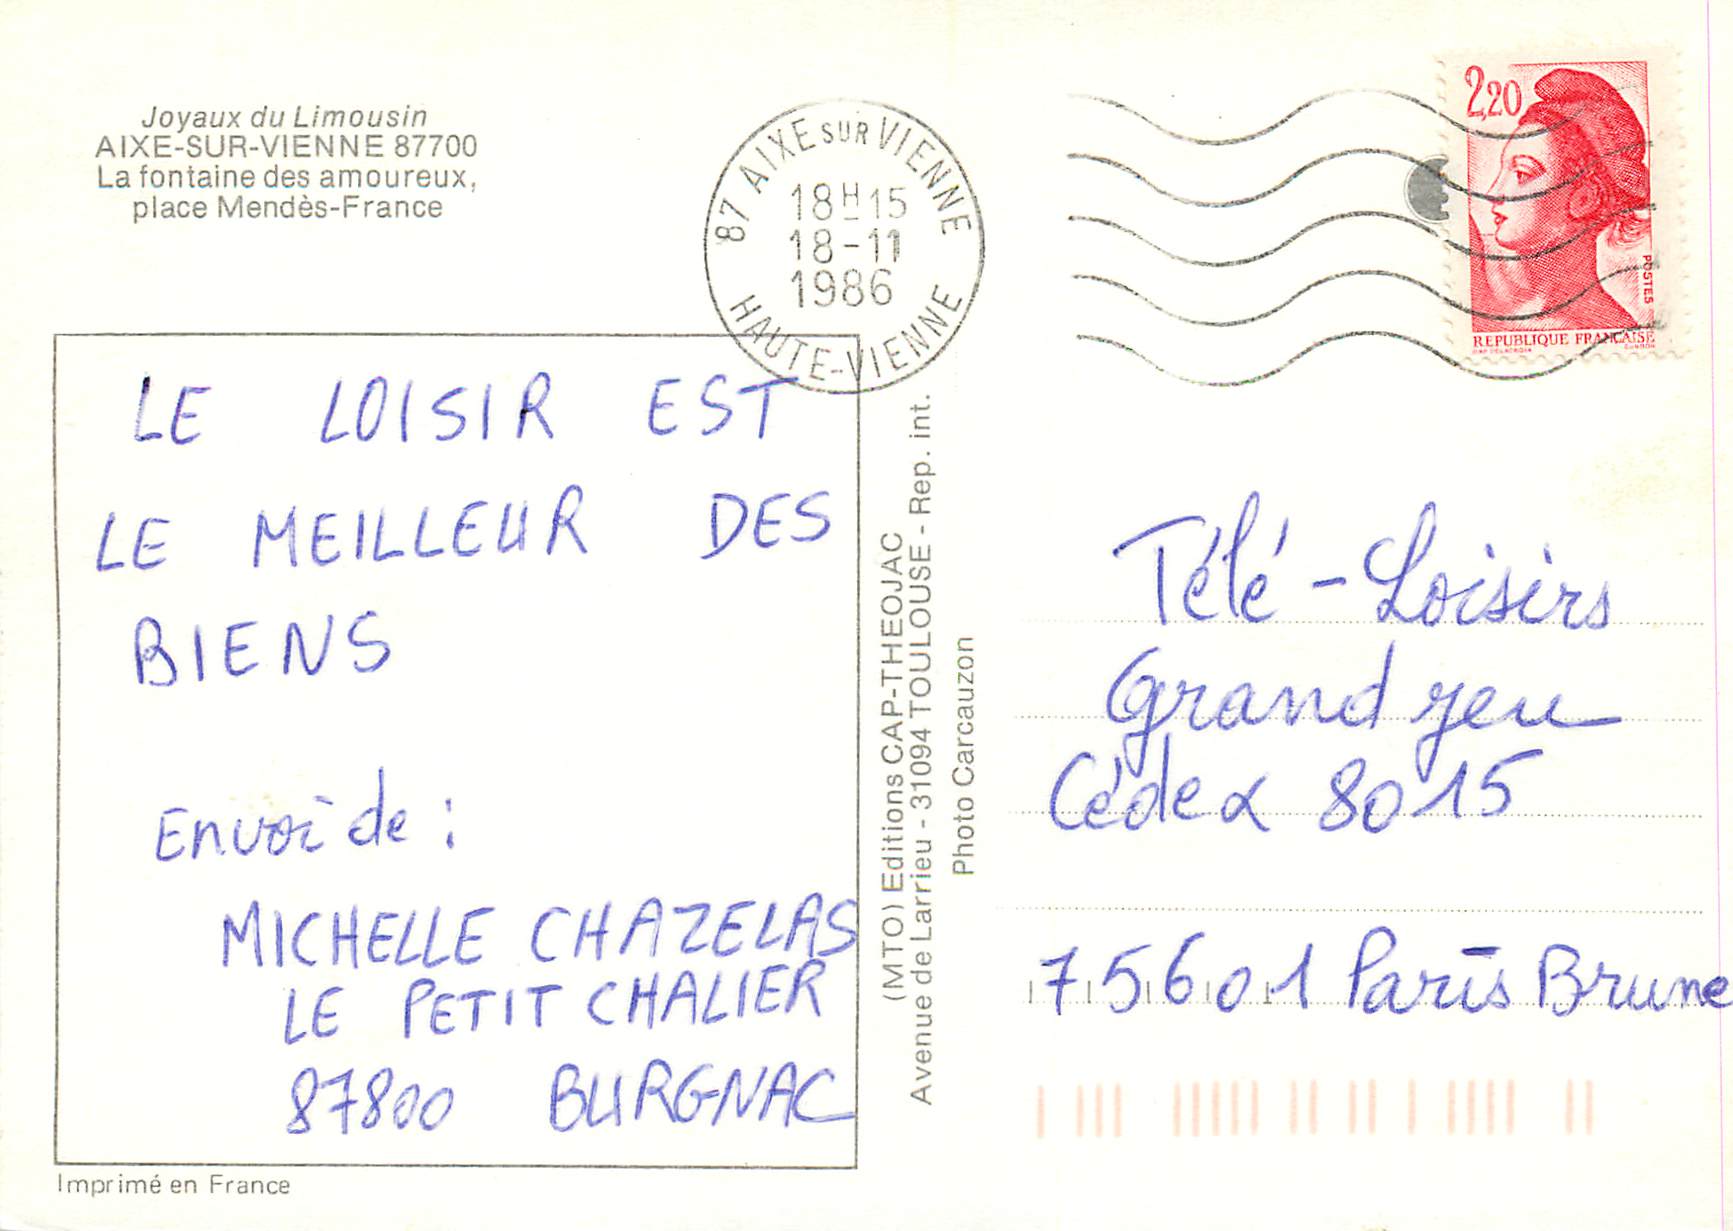 Joyaux du Limousin
AIXE-SUR-VIENNE 87700
La fontaine des amoureux,
place Mendès-France
87 AIXE SUR VIENNE
18H15
18-11
1986
HAUTE-VIENNE
2,20
POSTES
REPUBLIQUE FRANÇAISE
LE LOISIR EST
LE MEILLEUR DES
BIENS
Envoi de :
MICHELLE CHAZELAS
LE PETIT CHALIER
87800 BURGNAC
Imprimé en France
(MTO) Editions CAP-THEOJAC
Avenue de Larrieu - 31094 TOULOUSE - Rep. int.
Photo Carcauzon
Télé-Loisirs
Grand jeu
Cédex 8015
75601 Paris Brune